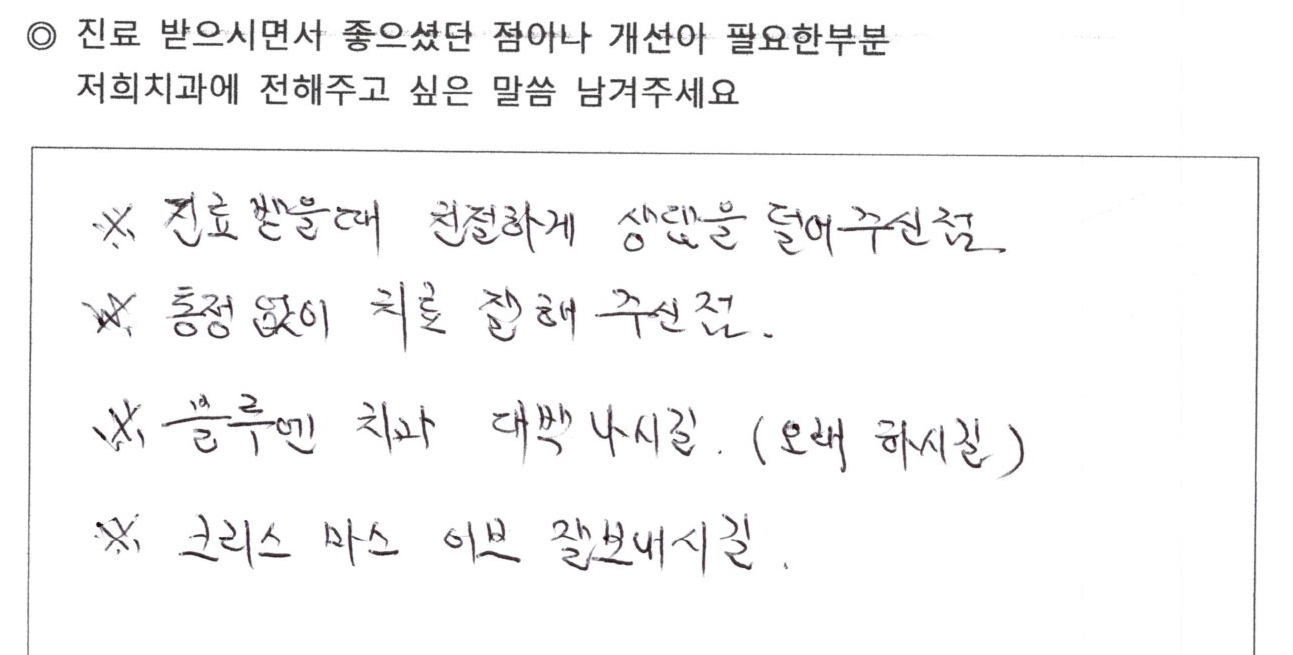 ◎ 진료 받으시면서 좋으셨던 점이나 개선이 필요한부분
저희치과에 전해주고 싶은 말씀 남겨주세요
※ 진료받을때 친절하게 상담을 덜어주신점.
※ 통정없이 치료 잘해 주신점.
※ 블루엔 치과 대박나시길. (오래 하시길)
※ 크리스 마스 이브 잘보내시길.